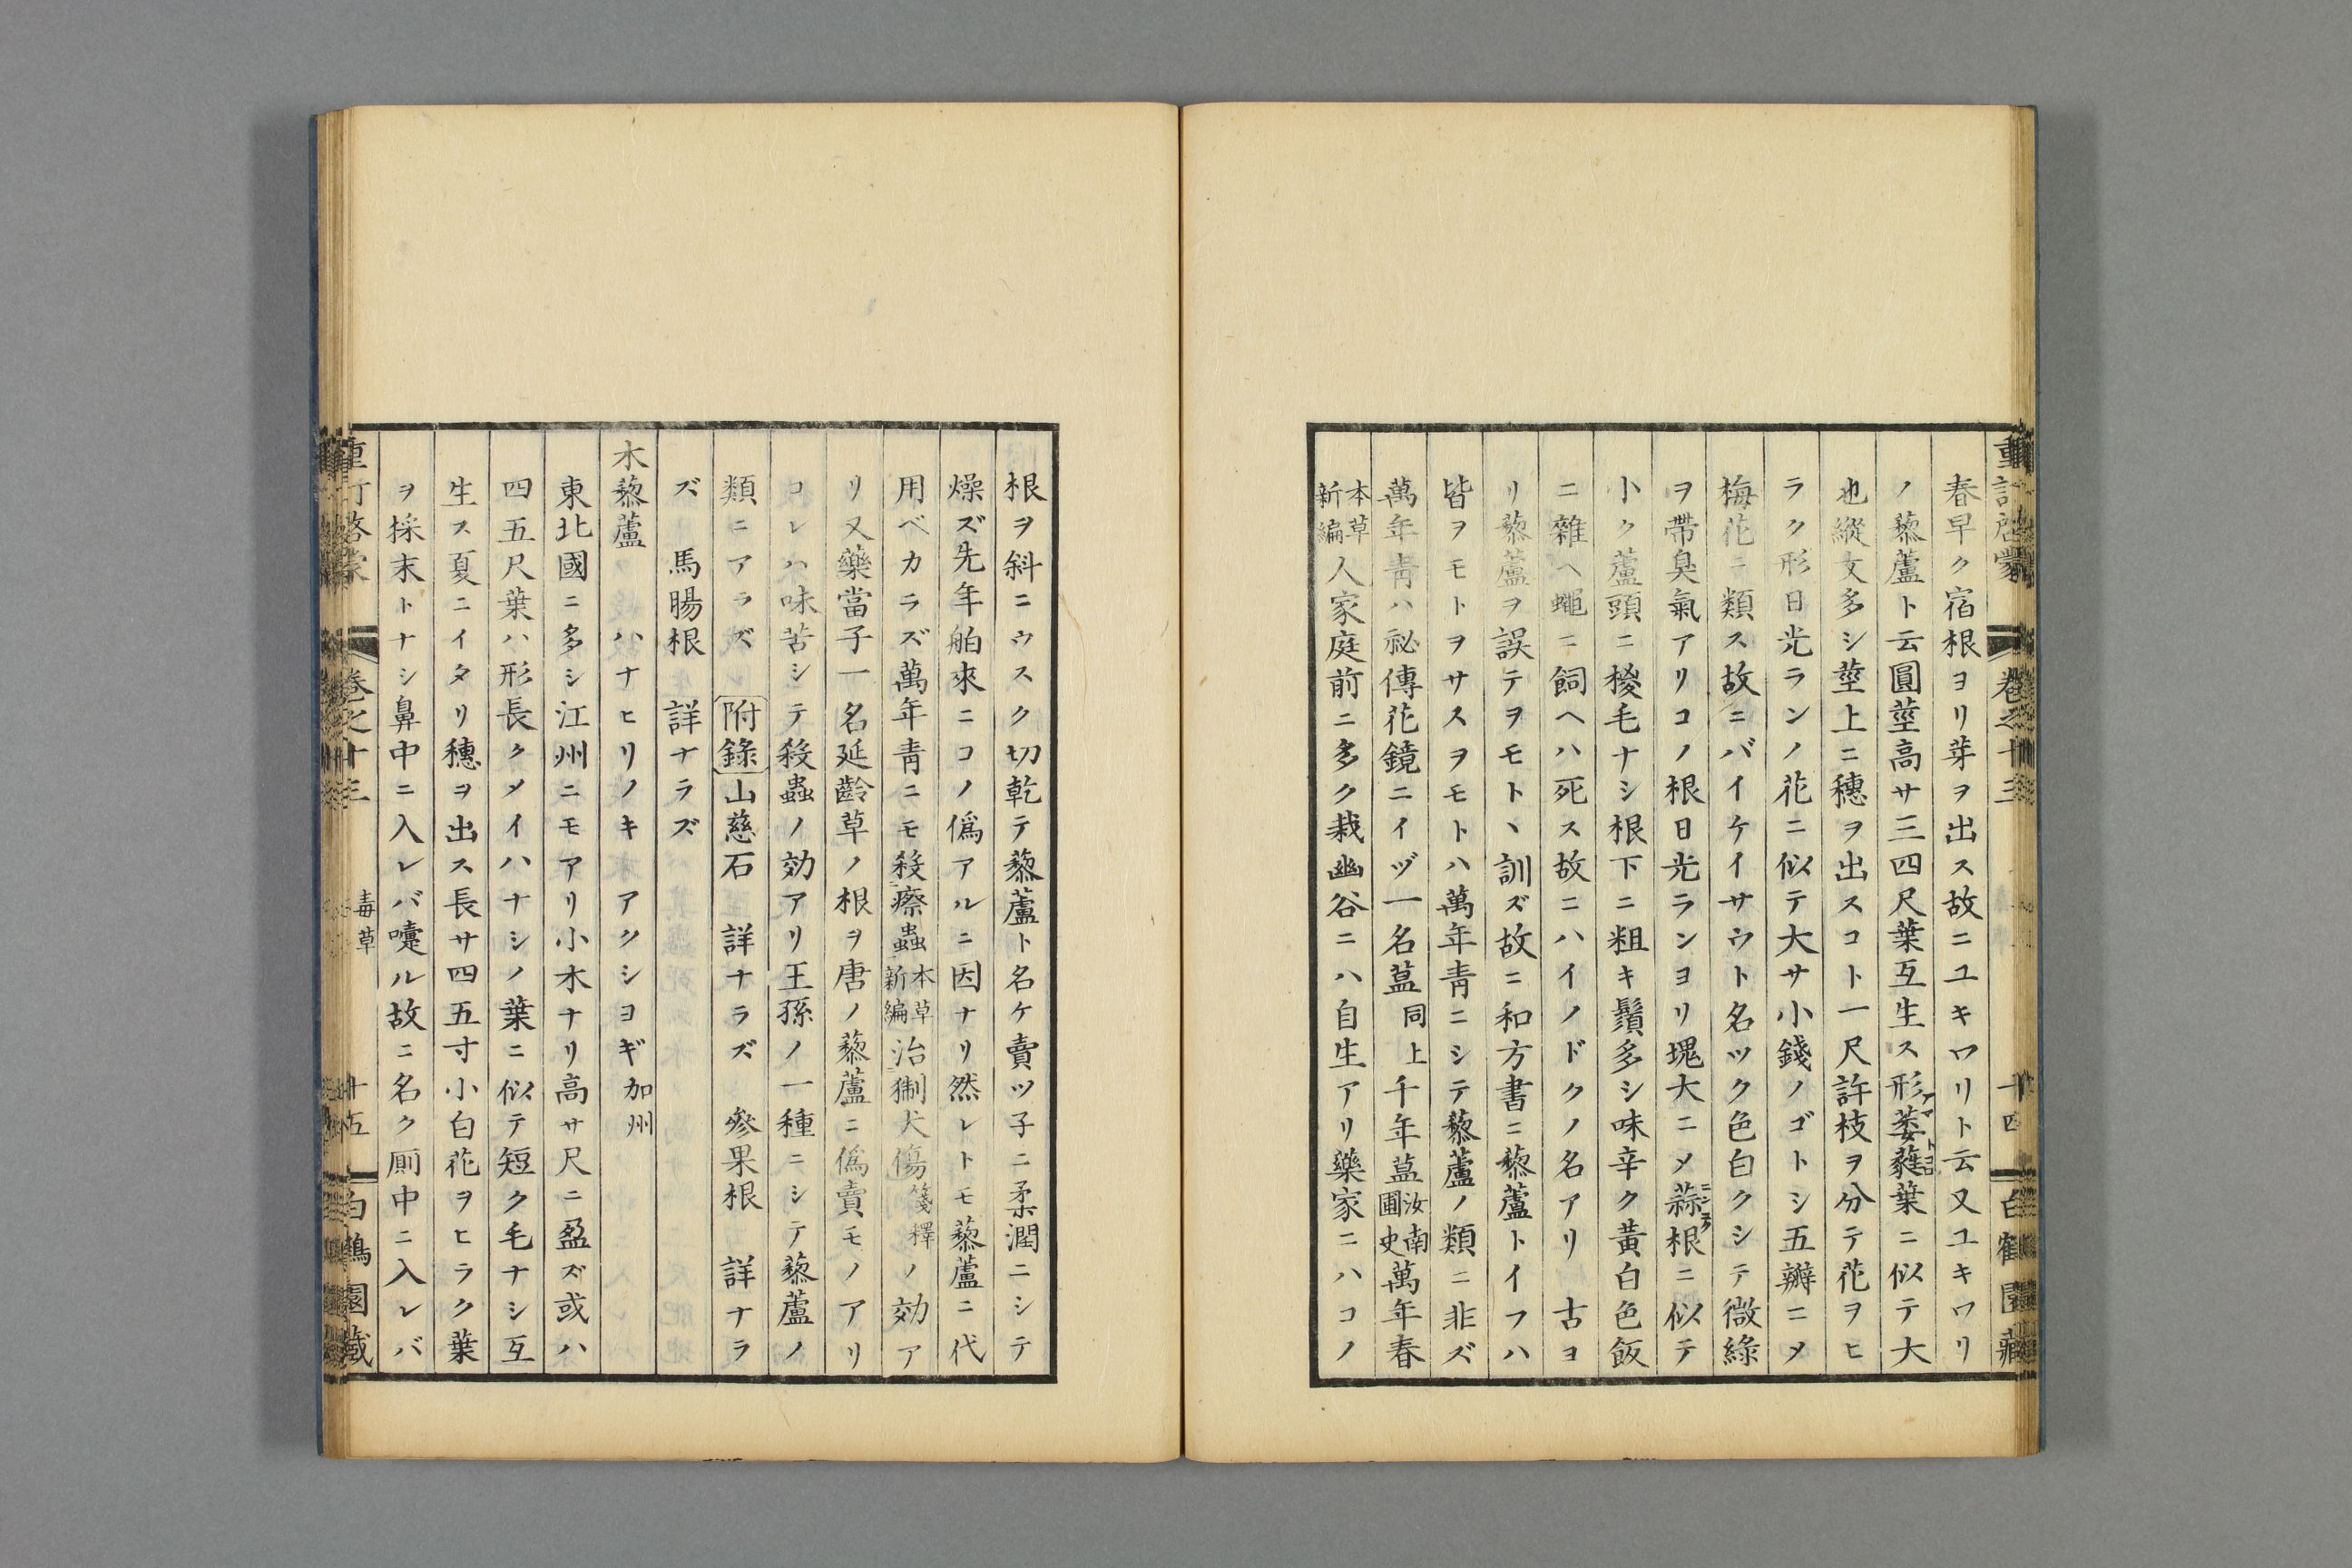 重訂啓蒙 卷之十三 十四 白鶴園藏
春早ク宿根ヨリ芽ヲ出ス故ニユキワリト云又ユキワリ
ノ藜蘆ト云圓莖高サ三四尺葉互生ス形萎蕤葉ニ似テ大
アマトコロ
也縱文多シ莖上ニ穗ヲ出スコト一尺許枝ヲ分テ花ヲヒ
ラク形日光ランノ花ニ似テ大サ小錢ノゴトシ五瓣ニメ
梅花ニ類ス故ニバイケイサウト名ツク色白クシテ微綠
ヲ帶臭氣アリコノ根日光ランヨリ塊大ニメ蒜根ニ似テ
小ク蘆頭ニ椶毛ナシ根下ニ粗キ鬚多シ味辛ク黃白色飯
ニ雜ヘ蠅ニ飼ヘハ死ス故ニハイノドクノ名アリ 古ヨ
リ藜蘆ヲ誤テヲモトヽ訓ズ故ニ和方書ニ藜蘆トイフハ
皆ヲモトヲサスヲモトハ萬年青ニシテ藜蘆ノ類ニ非ズ
萬年青ハ祕傳花鏡ニイヅ一名蒀同上千年蒀汝南圃史萬年春
本草新編人家庭前ニ多ク栽幽谷ニハ自生アリ藥家ニハコノ
根ヲ斜ニウスク切乾テ藜蘆ト名ケ賣ツ子ニ柔潤ニシテ
燥ズ先年舶來ニコノ僞アルニ因ナリ然レトモ藜蘆ニ代
用ベカラズ萬年青ニモ殺瘵蟲本草新編治猘犬傷箋釋ノ効ア
リ又藥當子一名延齡草ノ根ヲ唐ノ藜蘆ニ僞賣モノアリ
コレハ味苦シテ殺蟲ノ効アリ王孫ノ一種ニシテ藜蘆ノ
類ニアラズ 附錄 山慈石 詳ナラズ 參果根 詳ナラ
ズ 馬腸根 詳ナラズ
木藜蘆 ハナヒリノキ アクシヨギ加州
東北國ニ多シ江州ニモアリ小木ナリ高サ尺ニ盈ズ或ハ
四五尺葉ハ形長クメイハナシノ葉ニ似テ短ク毛ナシ互
生ス夏ニイタリ穗ヲ出ス長サ四五寸小白花ヲヒラク葉
ヲ採末トナシ鼻中ニ入レバ嚔ル故ニ名ク厠中ニ入レバ
重訂啓蒙 卷之十三 毒草 十五 白鶴園藏